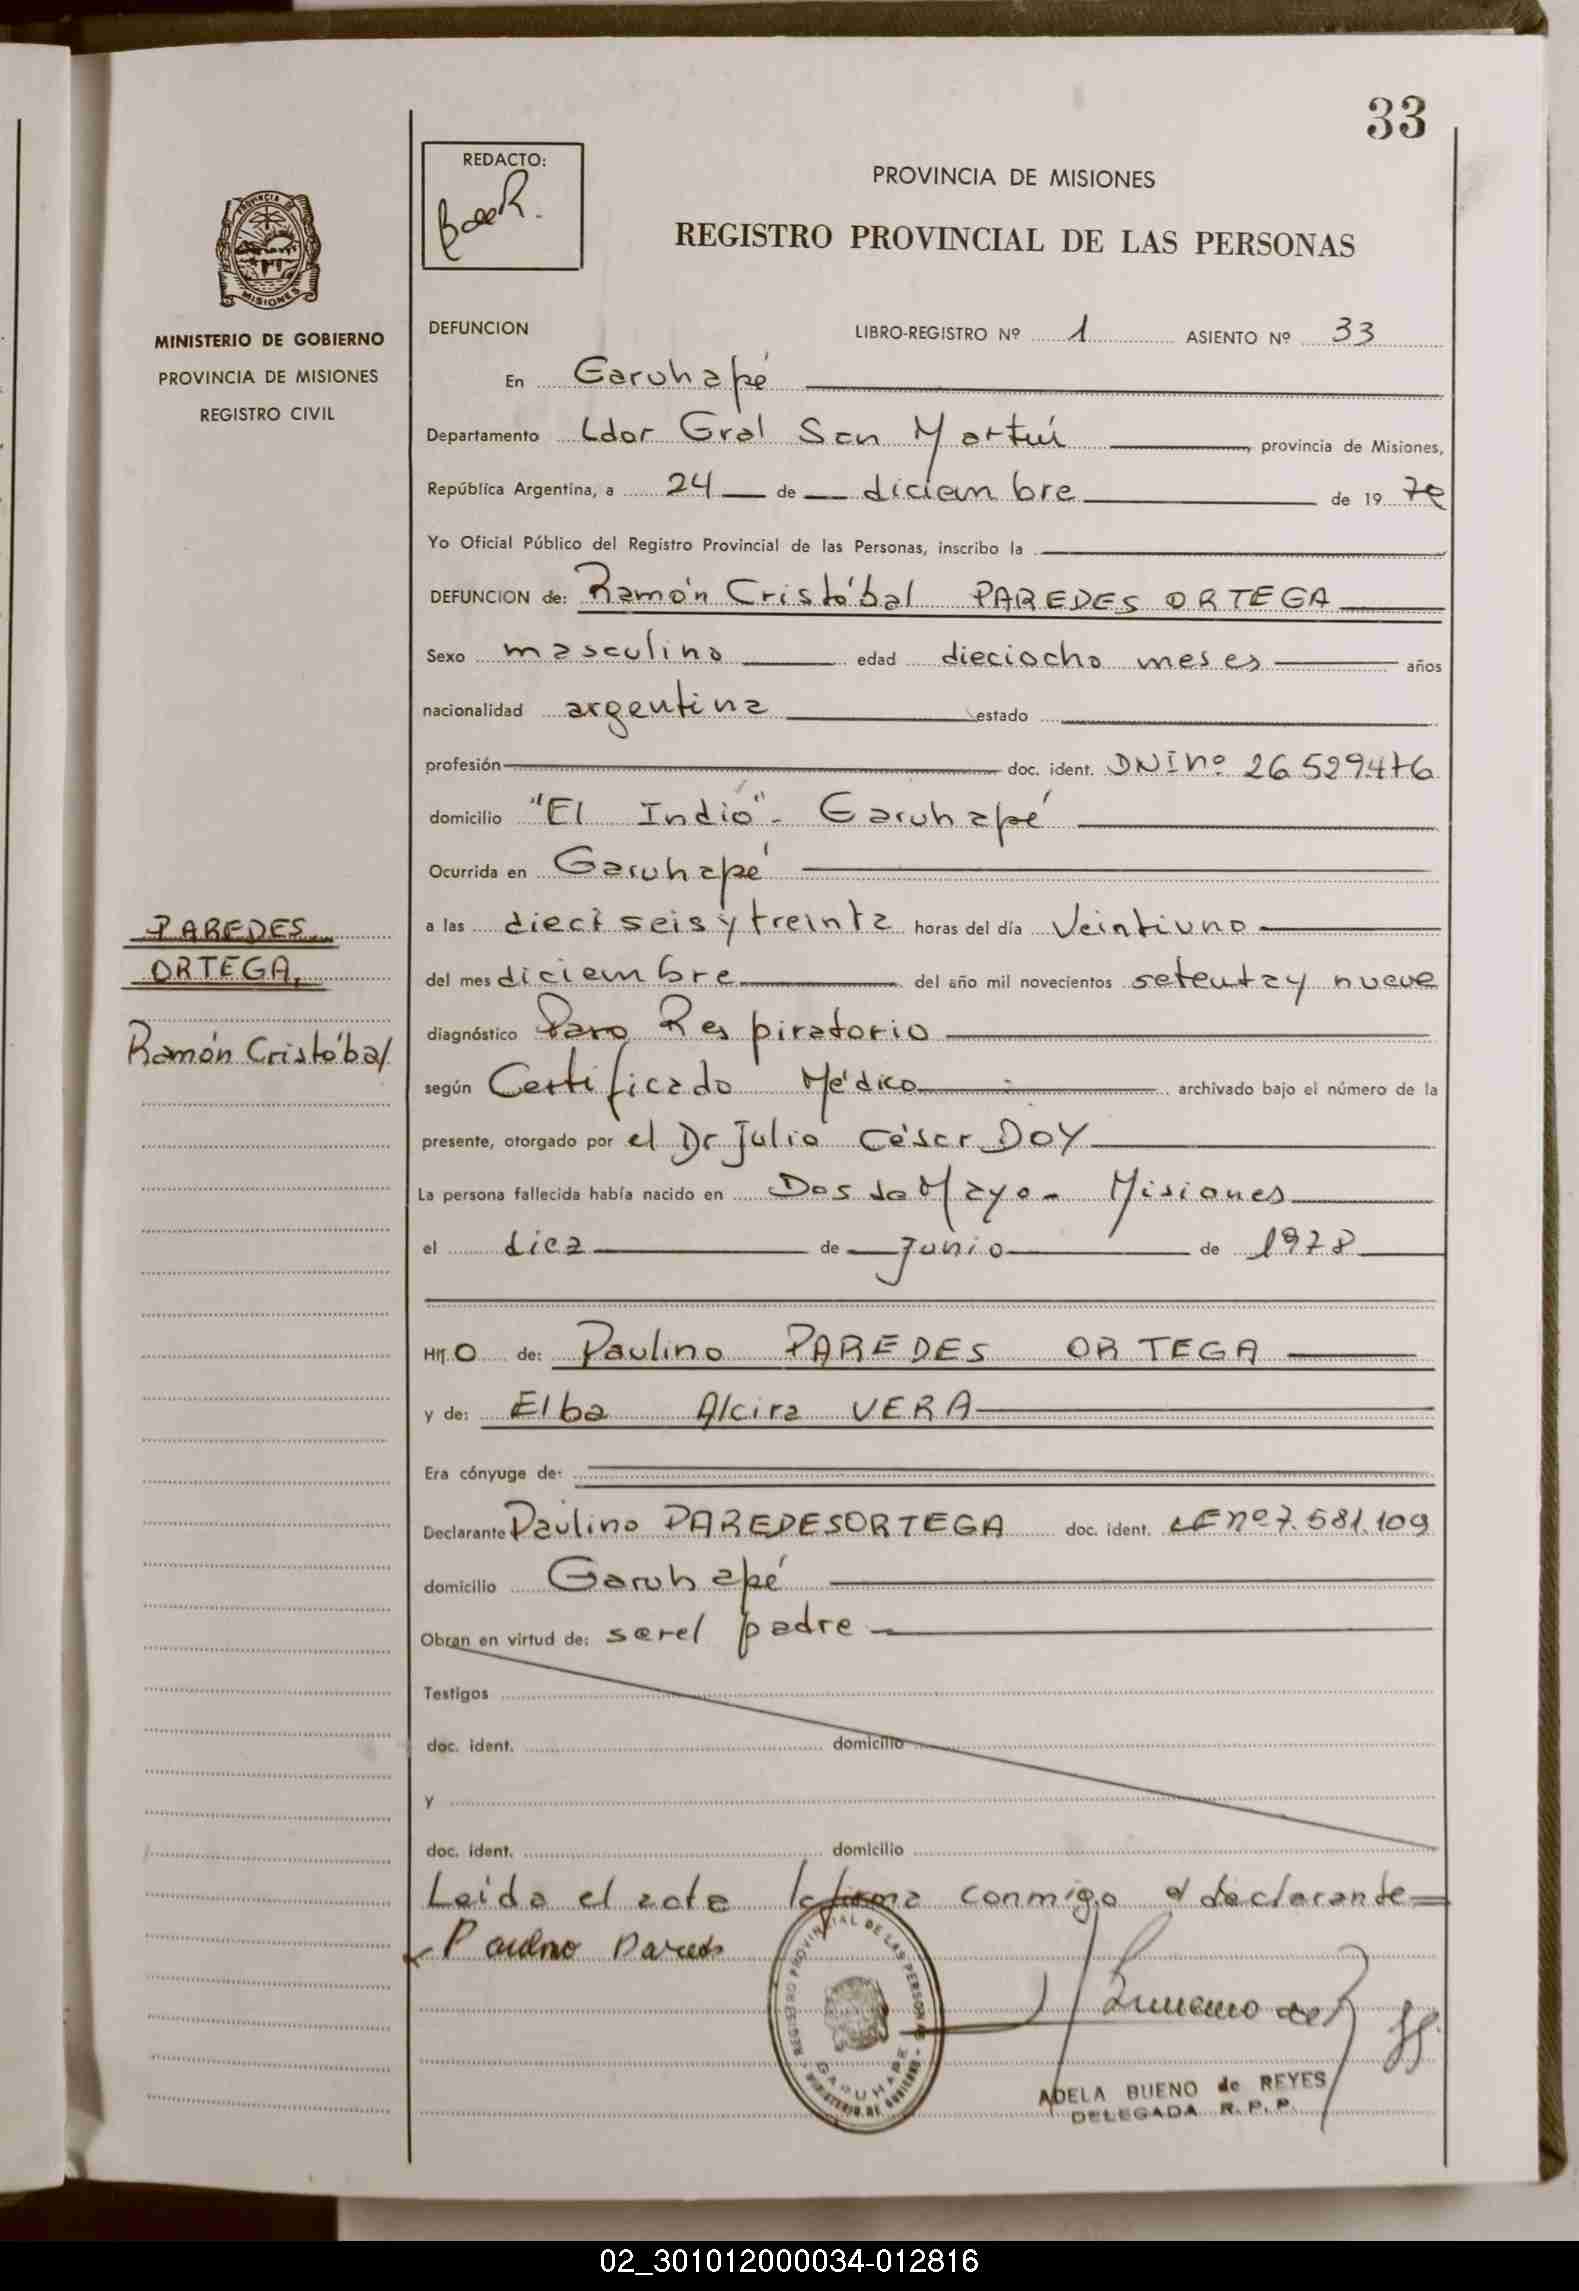 33
REDACTO:
PROVINCIA DE MISIONES
REGISTRO PROVINCIAL DE LAS PERSONAS
MINISTERIO DE GOBIERNO
PROVINCIA DE MISIONES
REGISTRO CIVIL
DEFUNCION LIBRO-REGISTRO Nº 1 ASIENTO Nº 33
En Garuhapé
Departamento Ldor Gral San Martín provincia de Misiones,
República Argentina, a 24 de diciembre de 19
Yo Oficial Público del Registro Provincial de las Personas, inscribo la
DEFUNCION de: Ramón Cristóbal PAREDES ORTEGA
Sexo masculino edad dieciocho meses años
nacionalidad argentina estado
profesión doc. ident. DNI nº
domicilio "El Indio" - Garuhapé
Ocurrida en Garuhapé
PAREDES
ORTEGA,
Ramón Cristóbal
a las dieciseis y treinta horas del día Veintiuno
del mes diciembre del año mil novecientos setenta y nueve
diagnóstico Paro Respiratorio
según Certificado Médico archivado bajo el número de la
presente, otorgado por el Dr Julio César DOY
La persona fallecida había nacido en Dos de Mayo - Misiones
el diez de junio de 1978
HIJO de: Paulino PAREDES ORTEGA
y de: Elba Alcira VERA
Era cónyuge de:
Declarante Paulino PAREDES ORTEGA doc. ident. LE nº 7.581.109
domicilio Garuhapé
Obran en virtud de: ser el padre
Testigos
doc. ident. domicilio
y
doc. ident. domicilio
Leida el acta la firma conmigo el declarante
Paulino Paredes
REGISTRO PROVINCIAL DE LAS PERSONAS
GARUHAPE
MINISTERIO DE GOBIERNO
ADELA BUENO de REYES
DELEGADA R.P.P.
02_301012000034-012816